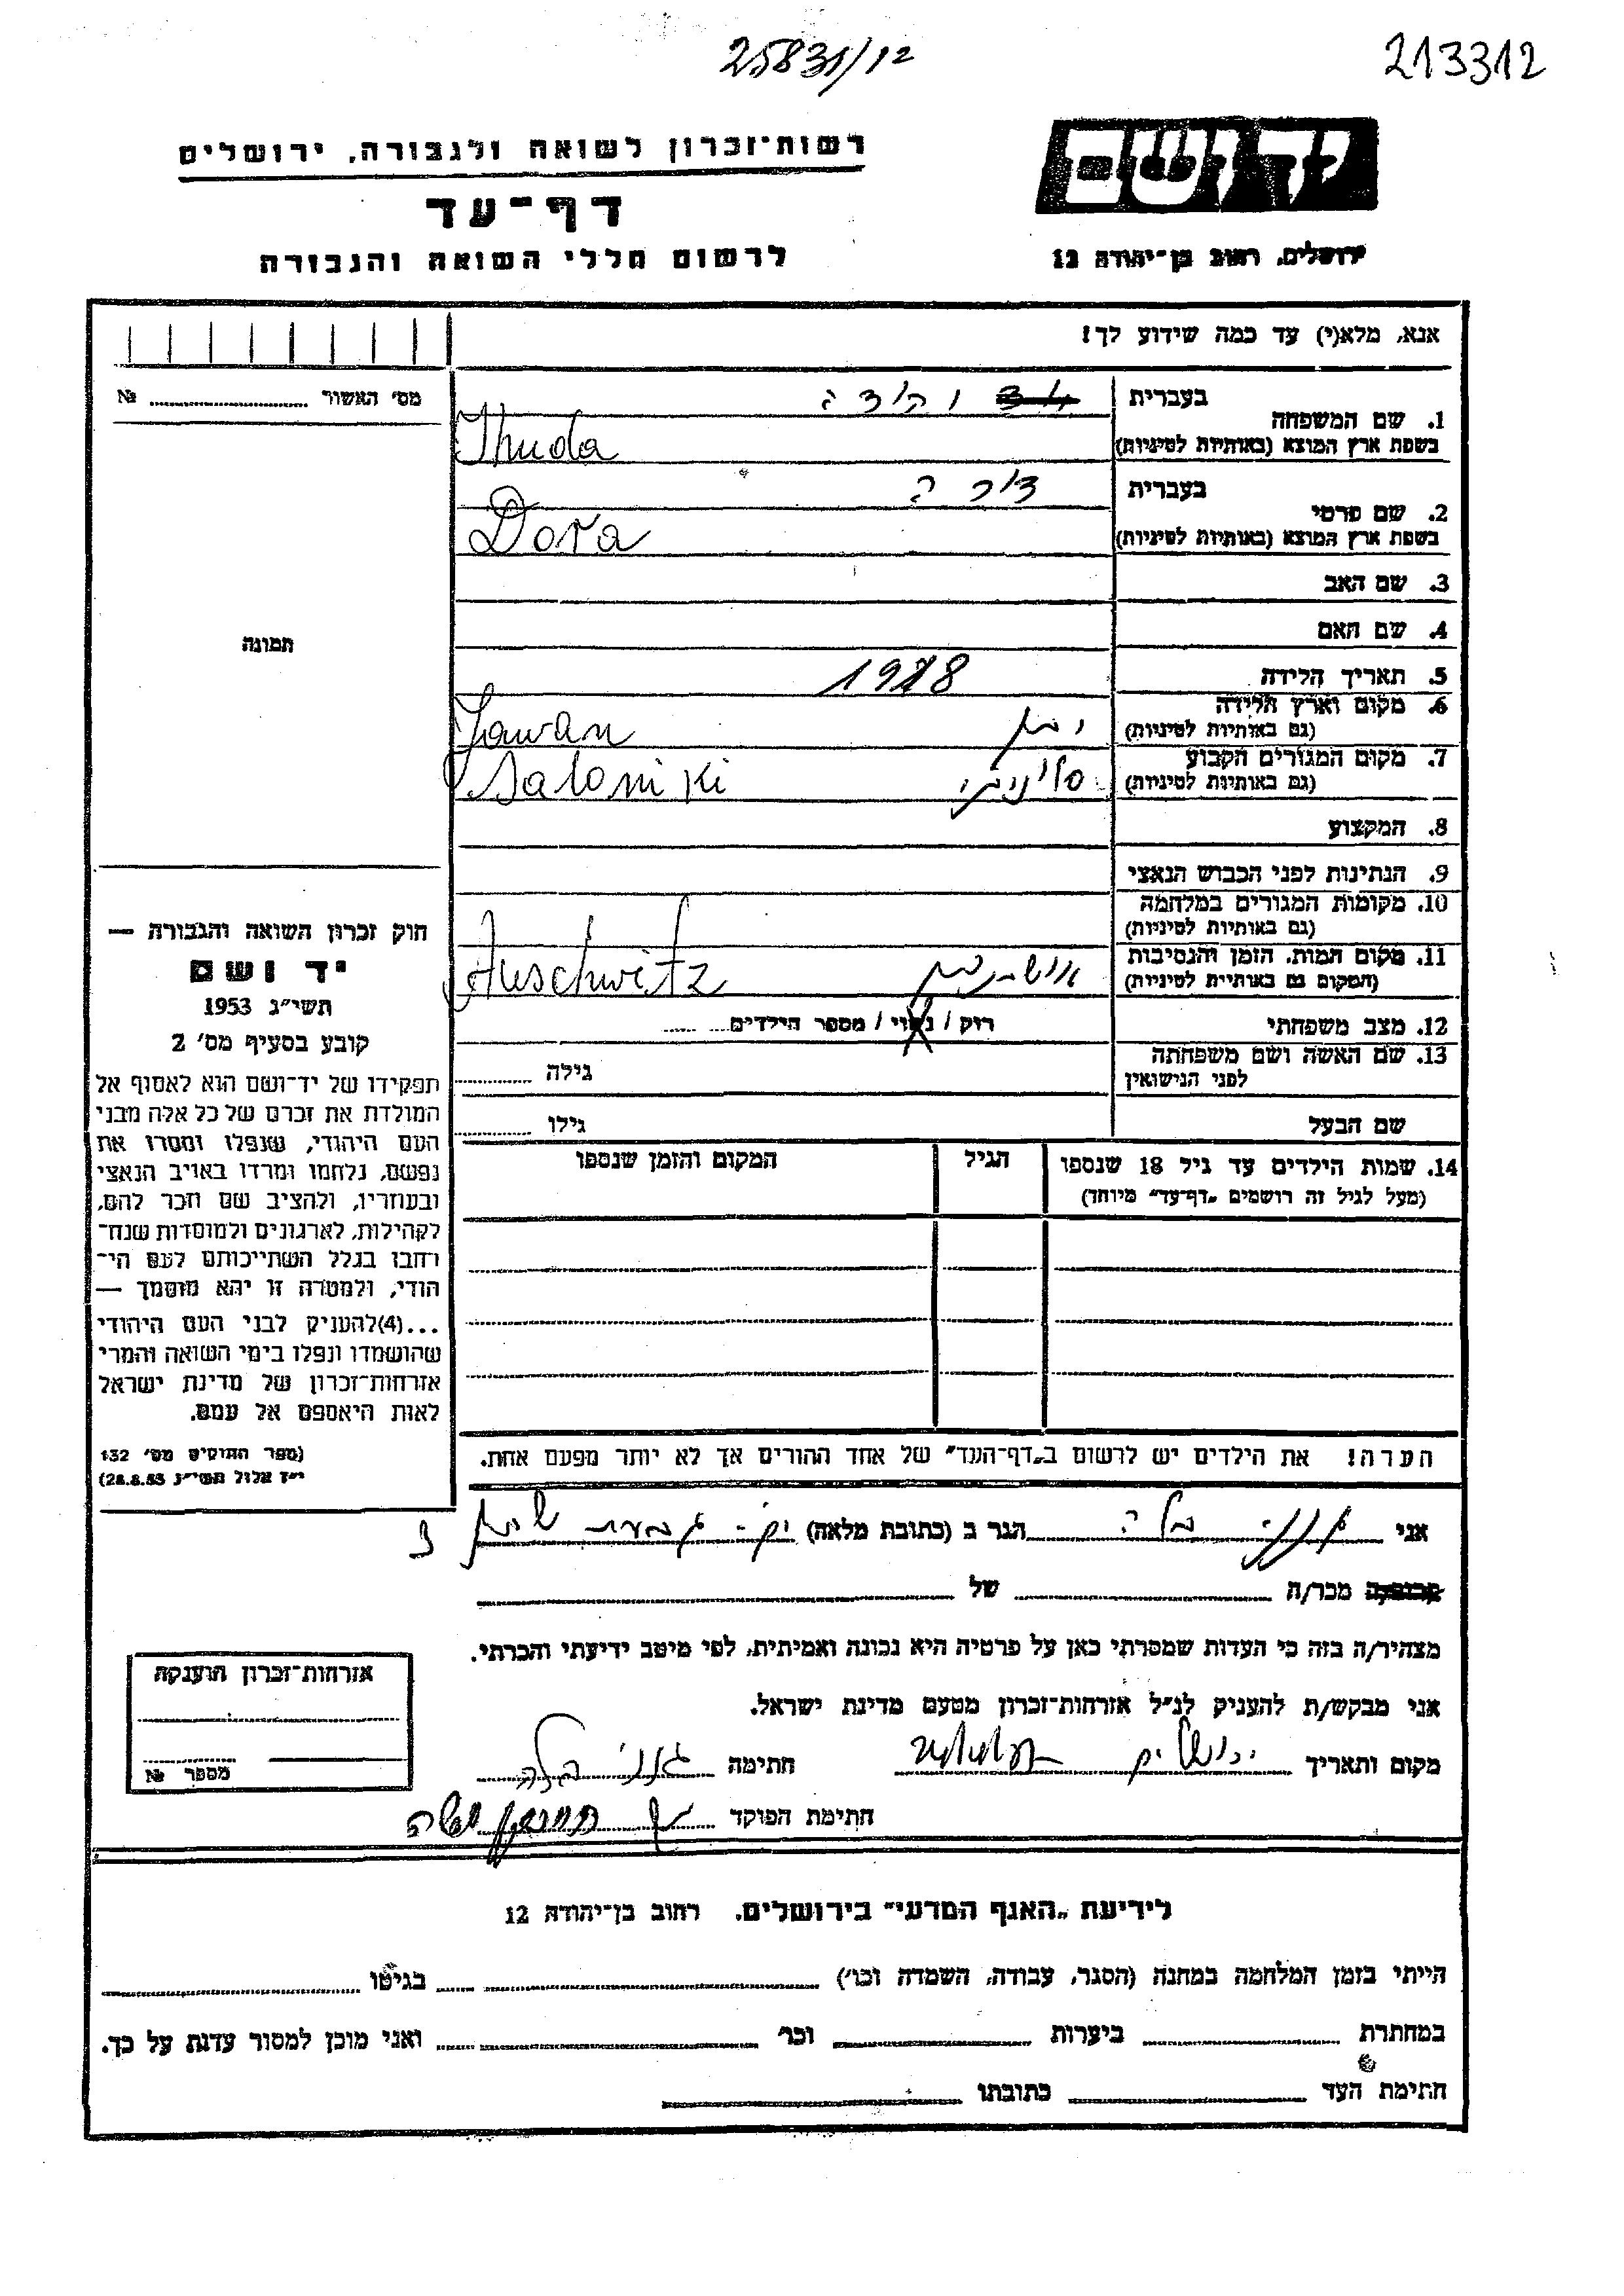 25831/12
213312
רשות־זכרון לשואה ולגבורה, ירושלים
דף־עד
לרשום חללי השואה והגבורה
יד ושם
ירושלים, רחוב בן־יהודה 12
אנא, מלא(י) עד כמה שידוע לך!
מס׳ האשור № 
1. שם המשפחה
בעברית
בשפת ארץ המוצא (באותיות לטיניות)
Thuda
2. שם פרטי
בעברית דורה
בשפת ארץ המוצא (באותיות לטיניות)
Dora
3. שם האב
4. שם האם
תמונה
5. תאריך הלידה 1918
6. מקום וארץ הלידה
(גם באותיות לטיניות)
יוון Jawan
7. מקום המגורים הקבוע
(גם באותיות לטיניות)
סלוניקי Saloniki
8. המקצוע
9. הנתינות לפני הכבוש הנאצי
10. מקומות המגורים במלחמה
(גם באותיות לטיניות)
11. מקום המות, הזמן והנסיבות
(המקום גם באותיות לטיניות)
אושוויץ Auschwitz
12. מצב משפחתי רוק / נשוי / מספר הילדים
13. שם האשה ושם משפחתה
לפני הנישואין
גילה
שם הבעל גילו
14. שמות הילדים עד גיל 18 שנספו
(מעל לגיל זה רושמים „דף־עד״ מיוחד)
הגיל
המקום והזמן שנספו
חוק זכרון השואה והגבורה —
יד ושם
תשי״ג 1953
קובע בסעיף מס׳ 2
תפקידו של יד־ושם הוא לאסוף אל
המולדת את זכרם של כל אלה מבני
העם היהודי, שנפלו ומסרו את
נפשם, נלחמו ומרדו באויב הנאצי
ובעוזריו, ולהציב שם וזכר להם,
לקהילות, לארגונים ולמוסדות שנח־
רבו בגלל השתייכותם לעם הי־
הודי, ולמטרה זו יהא מוסמך —
...(4)להעניק לבני העם היהודי
שהושמדו ונפלו בימי השואה והמרי
אזרחות־זכרון של מדינת ישראל
לאות היאספם אל עמם.
(ספר החוקים מס׳ 132
י״ז אלול תשי״ג 28.8.53)
הערה! את הילדים יש לרשום ב„דף־העד״ של אחד ההורים אך לא יותר מפעם אחת.
אני הגר ב (כתובת מלאה)
קרוב/ה מכר/ה של
מצהיר/ה בזה כי העדות שמסרתי כאן על פרטיה היא נכונה ואמיתית, לפי מיטב ידיעתי והכרתי.
אני מבקש/ת להעניק לנ״ל אזרחות־זכרון מטעם מדינת ישראל.
מקום ותאריך ירושלים חתימה
חתימת הפוקד
אזרחות־זכרון הוענקה
מספר №
לידיעת „האגף המדעי״ בירושלים, רחוב בן־יהודה 12
הייתי בזמן המלחמה במחנה (הסגר, עבודה, השמדה וכו׳) בגיטו
במחתרת ביערות וכו׳ ואני מוכן למסור עדות על כך.
חתימת העד כתובתו